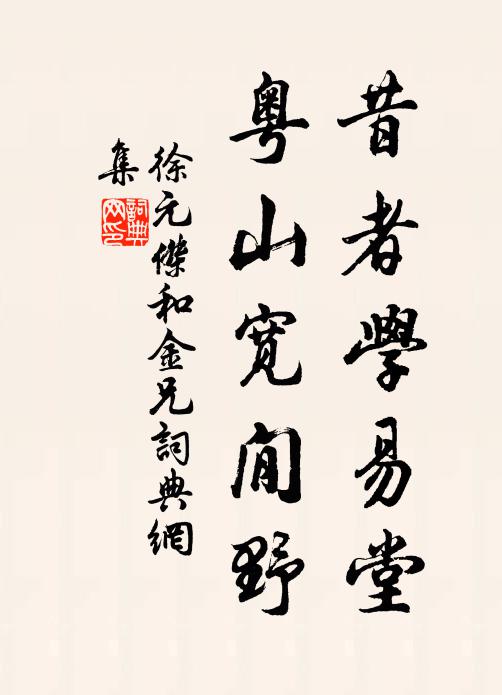 昔者學易堂
粵山寬閒野
徐元傑和金兄詞典網
集
詞典
网印